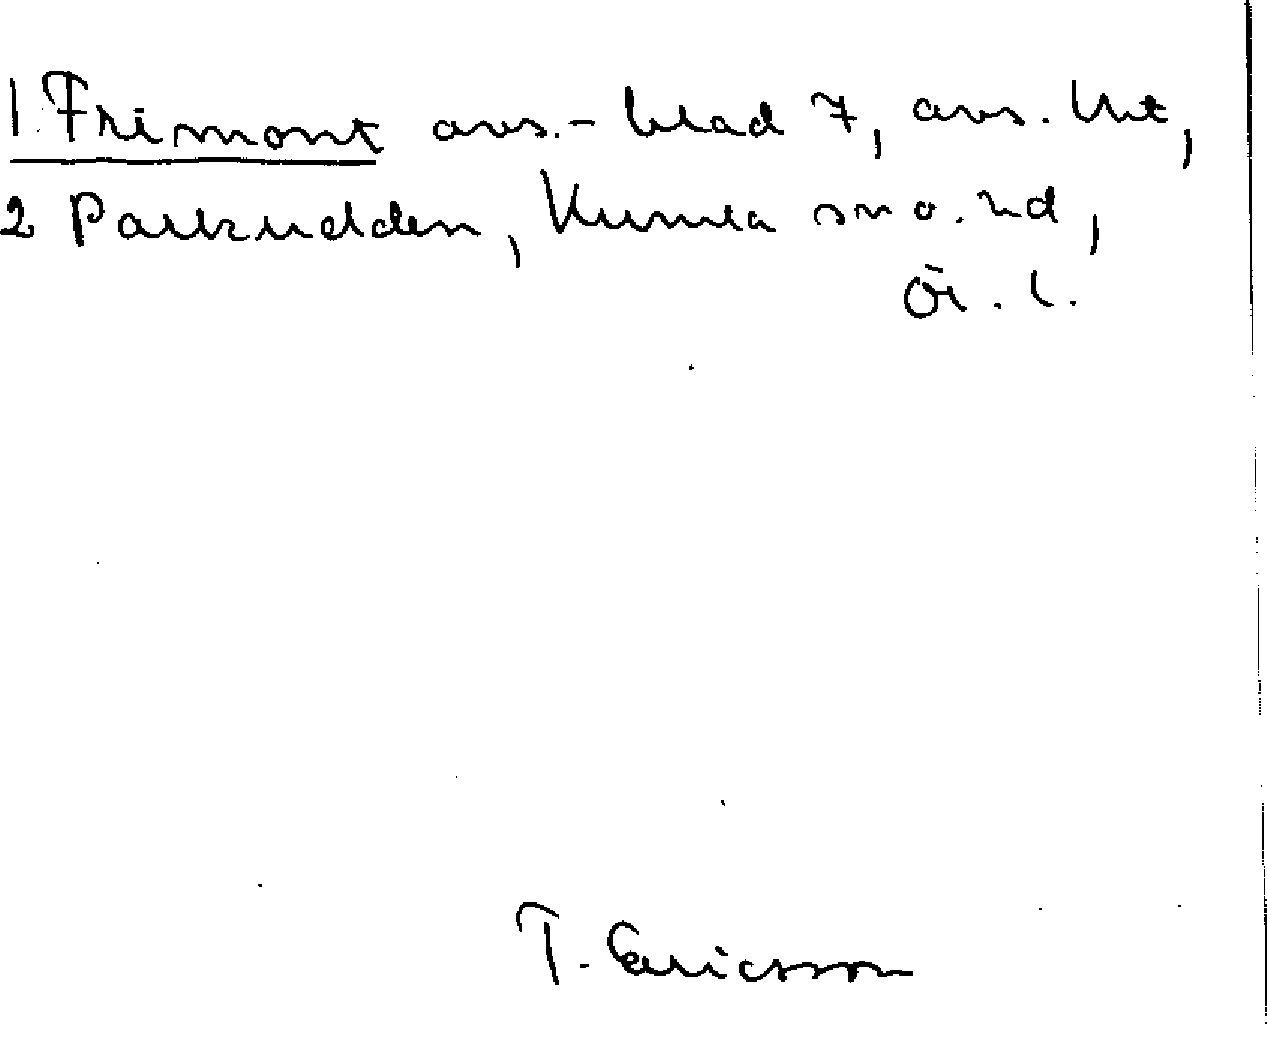 1 Frimont avs.-blad 7, avs. Unt,
2 Parkudden, Kumla sn o. hd,
Ör. l.
T. Ericsson